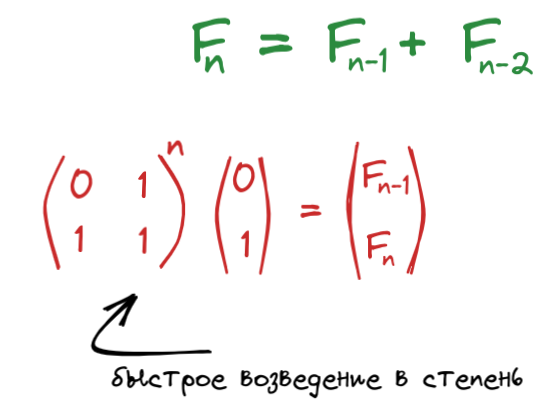 Fn = Fn-1 + Fn-2
(0 1)n (0) = (Fn-1)
(1 1) (1) (Fn)
быстрое возведение в степень